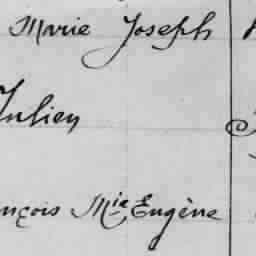 Marie Joseph
Julien
nçois Mie Eugène